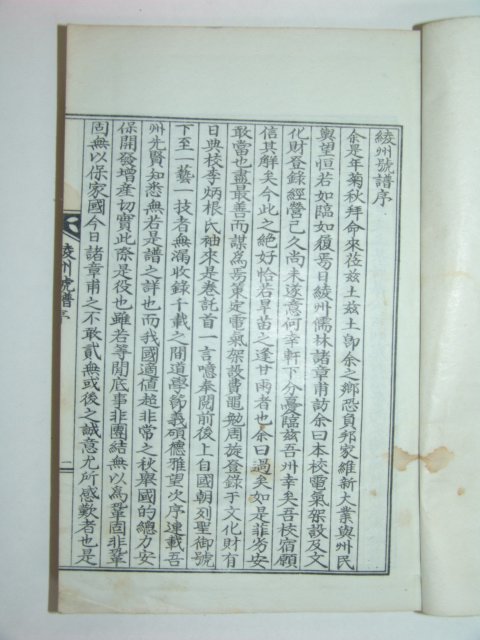 綾州號譜序
余是年菊秋拜命來莅玆土玆土卽余之鄕恐負邦家維新大業與州民
輿望恒若如臨如復焉日綾州儒林諸章甫訪余曰本校電氣架設及文
化財登錄經營已久尚未遂意何幸軒下分憂臨玆吾州幸矣吾校宿願
信其解矣今此之絶好恰若旱苗之逢甘雨者也余曰過矣如是菲劣安
敢當也盡最善而謀爲焉第定電氣架設費黽勉周旋登錄于文化財有
日典校李炳根氏袖來是卷託首一言噫奉閱前後上自國朝列聖御號
下至一藝一技者無漏收錄千載之間道學節義碩德雅望次序連載吾
州先賢知悉無若是譜之詳也而我國適値超非常之秋擧國的總力安
保開發增産切實此際是役也雖若等閒底事非團結無以爲鞏固非鞏
固無以保家國今日諸章甫之不敢貳無或後之誠意尤所感歎者也是
綾州號譜序
一